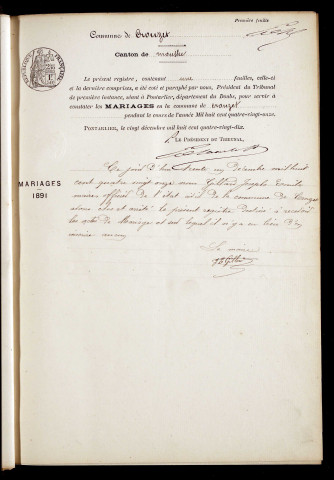 Première feuille
Commune de Crouzet
Canton de mouthe
Le présent registre, contenant une feuilles, celle-ci
et la dernière comprises, a été coté et paraphé par nous, Président du Tribunal
de première instance, séant à Pontarlier, département du Doubs, pour servir à
constater les MARIAGES en la commune de crouzet
pendant le cours de l'année Mil huit cent quatre-vingt-onze.
PONTARLIER, le vingt décembre mil huit cent quatre-vingt-dix.
P. LE PRÉSIDENT DU TRIBUNAL,
RÉPUBLIQUE FRANÇAISE
MARIAGES
1891
Ce jour d'hui trente un décembre mil huit
cent quatre vingt onze nous Joseph
maire officier de l'état civil de la commune de Crouzet
avons clos et arrêté le présent registre destiné à recevoir
les actes de Mariage et sur lequel il n'y a eu lieu d'en
inscrire aucun
Le maire